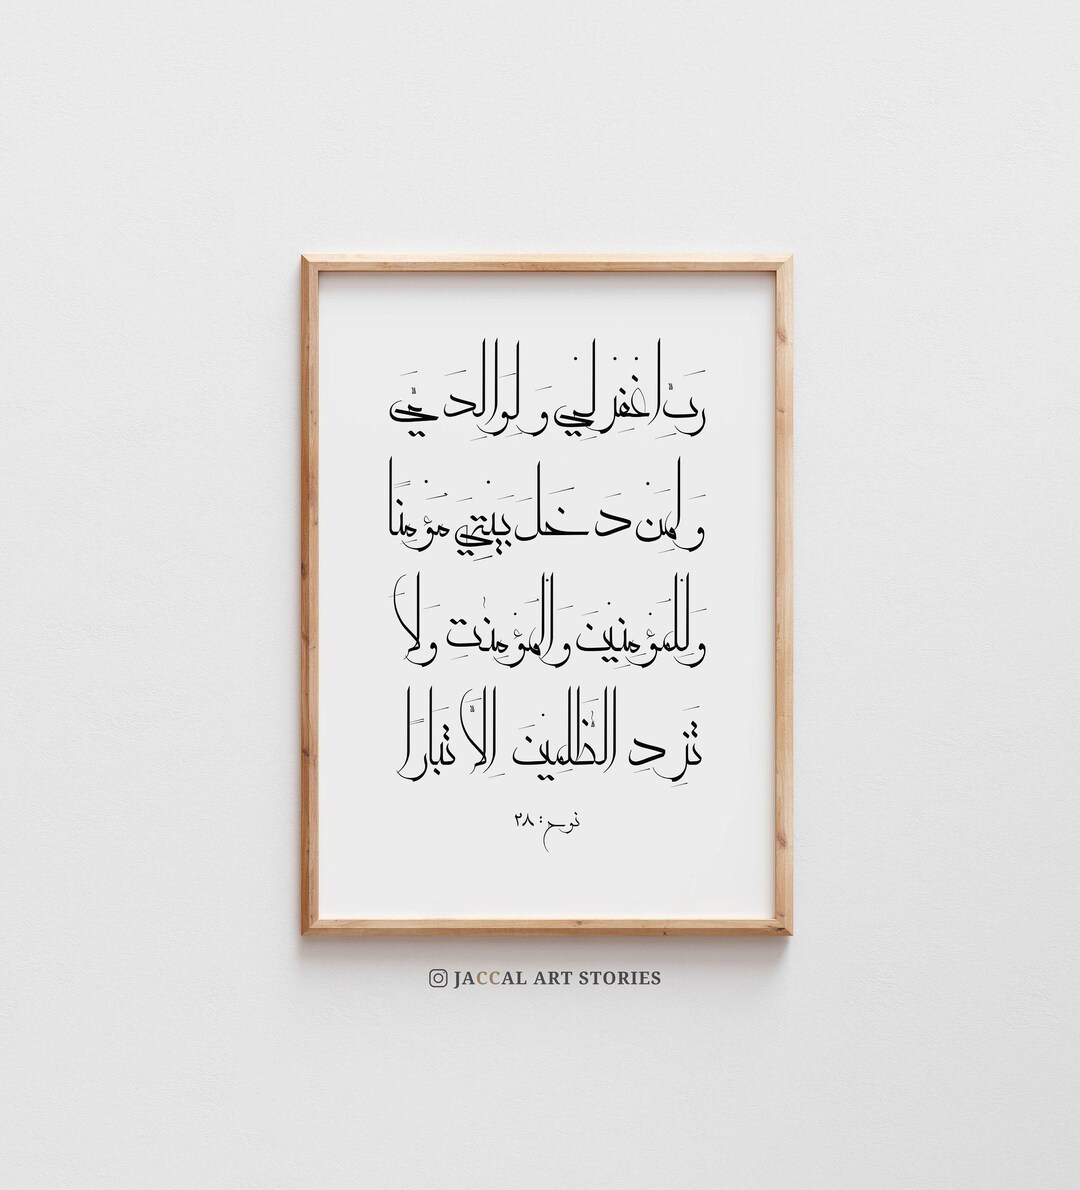 رَبِّ اغْفِرْ لِي وَلِوَالِدَيَّ
وَلِمَنْ دَخَلَ بَيْتِيَ مُؤْمِنًا
وَلِلْمُؤْمِنِينَ وَالْمُؤْمِنٰتِ وَلَا
تَزِدِ الظّٰلِمِينَ إِلَّا تَبَارًا
نوح: ٢٨
JACCAL ART STORIES